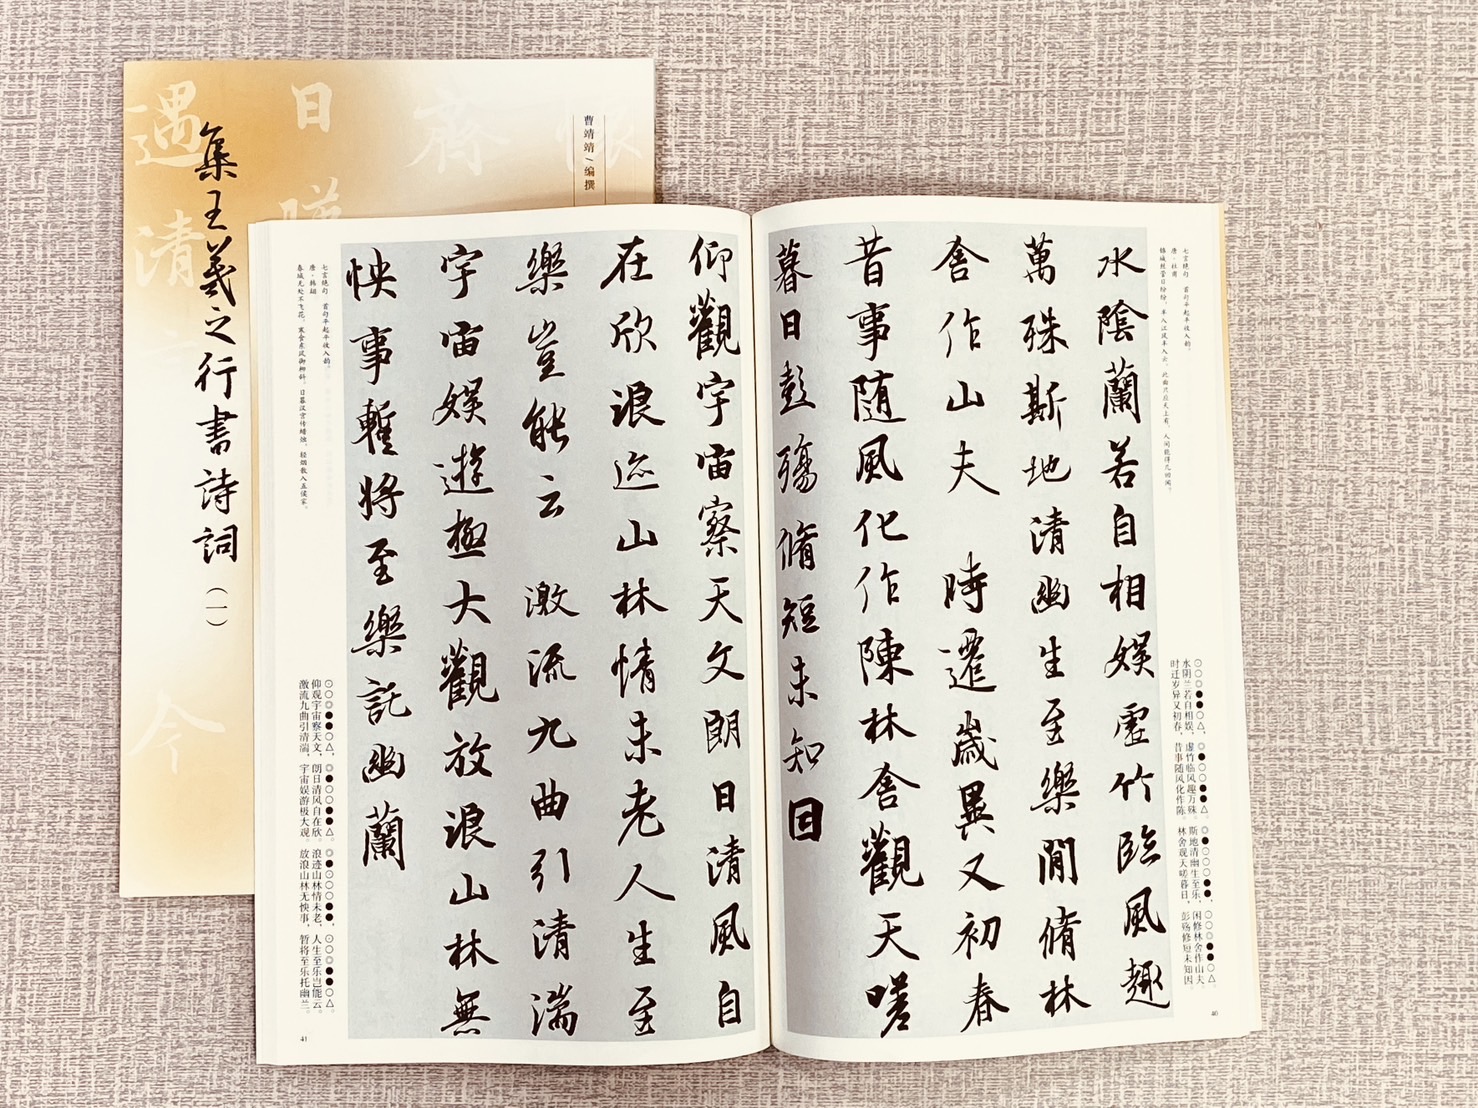 遇
清
今
日
齊
懷
集王羲之行書詩詞(一)
曹靖靖/编撰
七言绝句 首句平起平收入韵。
唐·杜甫
锦城丝管日纷纷,半入江风半入云。此曲只应天上有,人间能得几回闻。
水陰蘭若自相娱虛竹臨風趣
萬殊斯地清幽生至樂閒脩林
舍作山夫 時遷歲異又初春
昔事隨風化作陳林舍觀天嗟
暮日彭殤脩短未知因
⊙○◎●●○△, ◎●○○●●△。 ◎●○○○●●, ○○◎●●○△。
水阴兰若自相娱, 虚竹临风趣万殊。 斯地清幽生至乐, 闲修林舍作山夫。
时迁岁异又初春, 昔事随风化作陈。 林舍观天嗟暮日, 彭殇修短未知因。
40
仰觀宇宙察天文朗日清風自
在欣浪迹山林情未老人生至
樂豈能云 激流九曲引清湍
宇宙娱遊極大觀放浪山林無
怏事暫將至樂託幽蘭
七言绝句 首句平起平收入韵。
唐·韩翃
春城无处不飞花,寒食东风御柳斜。日暮汉宫传蜡烛,轻烟散入五侯家。
⊙○◎●●○△, ◎●○○●●△。 ◎●⊙○○●●, ⊙○◎●●○△。
仰观宇宙察天文, 朗日清风自在欣。 浪迹山林情未老, 人生至乐岂能云。
激流九曲引清湍, 宇宙娱游极大观。 放浪山林无怏事, 暂将至乐托幽兰。
41